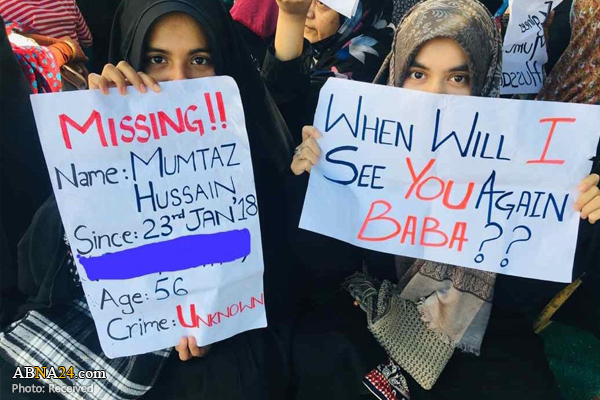 MISSING!!
Name: MUMTAZ
HUSSAIN
Since: 23rd JAN'18
Age: 56
Crime: UNKNOWN
WHEN WILL I
SEE YOU AGAIN
BABA??
Hussain
ABNA24.com
Photo: Received